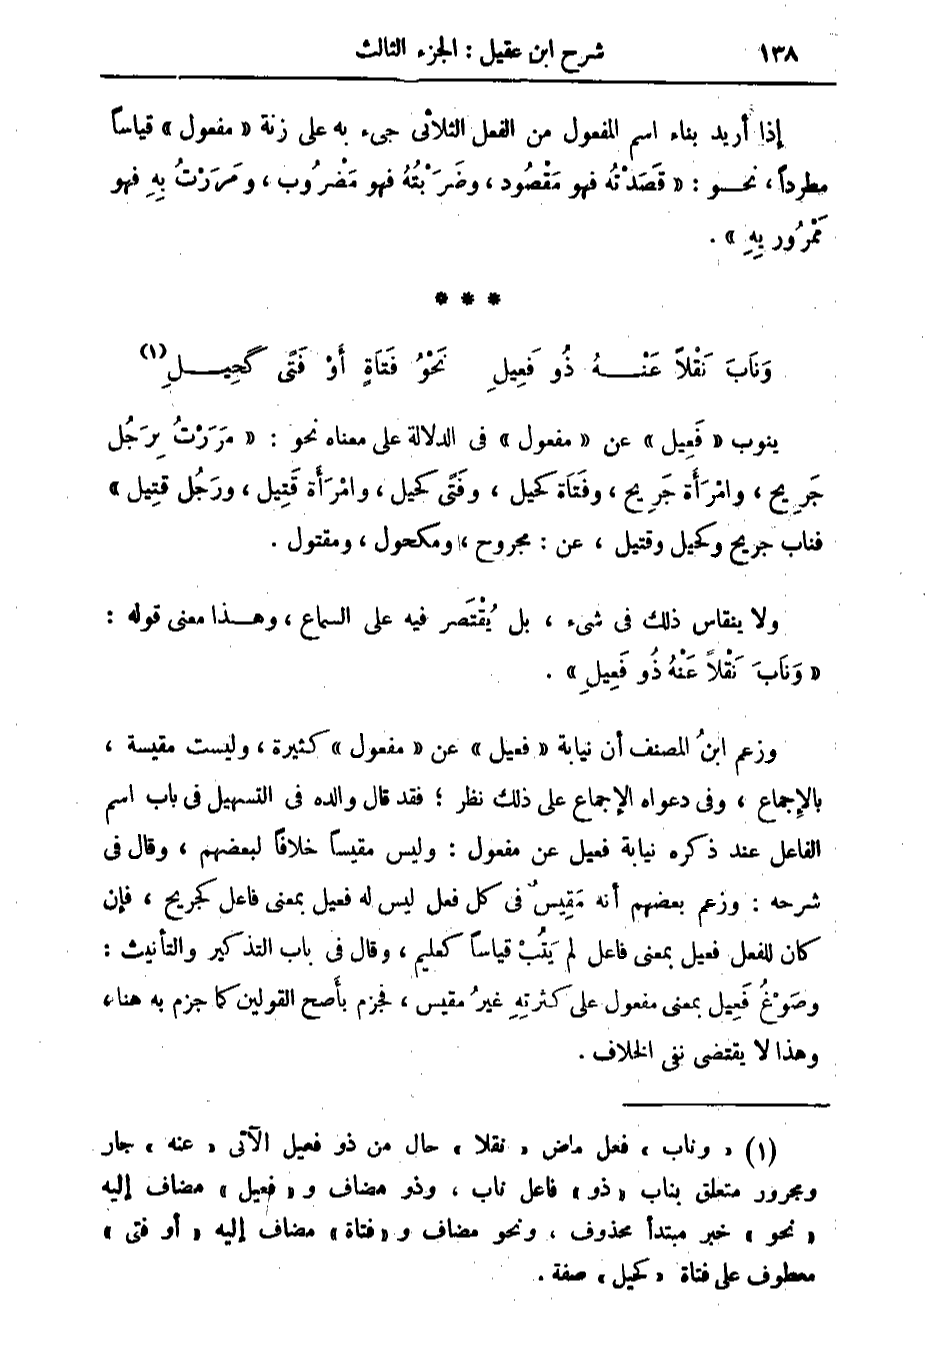 ١٣٨ شرح ابن عقيل : الجزء الثالث
إذا أريد بناء اسم المفعول من الفعل الثلاثى جىء به على زنة « مفعول » قياساً
مطرداً ، نحـــو : « قَصَدْتُه فهو مَقْصُود ، وضَرَبْتُهُ فهو مَضْرُوب ، ومَرَرْتُ بِهِ فهو
مَمْرُور بِهِ » .
* * *
وَنَابَ نَقْلاً عَنْـــهُ ذُو فَعِيلِ نَحْوُ فَتَاةٍ أَوْ فَتًى كَحِيـــلِ (١)
ينوب « فَعِيل » عن « مفعول » فى الدلالة على معناه نحو : « مَرَرْتُ بِرَجُل
جَرِيح ، وامْرَأَة جَرِيح ، وفَتَاة كحيل ، وفَتًى كحيل ، وامْرَأَة قَتِيل ، ورَجُل قتيل »
فناب جريح وكحيل وقتيل ، عن : مجروح ، ومكحول ، ومقتول .
ولا ينقاس ذلك فى شىء ، بل يُقْتَصَر فيه على السماع ، وهـــذا معنى قوله :
« وَنَابَ نَقْلاً عَنْهُ ذُو فَعِيلِ » .
وزعم ابنُ المصنف أن نيابة « فعيل » عن « مفعول » كثيرة ، وليست مقيسة ،
بالإجماع ، وفى دعواه الإجماع على ذلك نظر ؛ فقد قال والده فى التسهيل فى باب اسم
الفاعل عند ذكره نيابة فعيل عن مفعول : وليس مقيساً خلافاً لبعضهم ، وقال فى
شرحه : وزعم بعضهم أنه مَقِيسٌ فى كل فعل ليس له فعيل بمعنى فاعل كجريح ، فإن
كان للفعل فعيل بمعنى فاعل لم يَنُبْ قياساً كعليم ، وقال فى باب التذكير والتأنيث :
وصَوْغُ فَعِيل بمعنى مفعول على كثرتِهِ غيرُ مقيس ، فجزم بأصح القولين كما جزم به هنا ،
وهذا لا يقتضى نفى الخلاف .
(١) « وناب » فعل ماض « نقلا » حال من ذو فعيل الآتى « عنه » جار
ومجرور متعلق بناب « ذو » فاعل ناب ، وذو مضاف و « فعيل » مضاف إليه
« نحو » خبر مبتدأ محذوف ، ونحو مضاف و « فتاة » مضاف إليه « أو فتى »
معطوف على فتاة « كحيل » صفة .